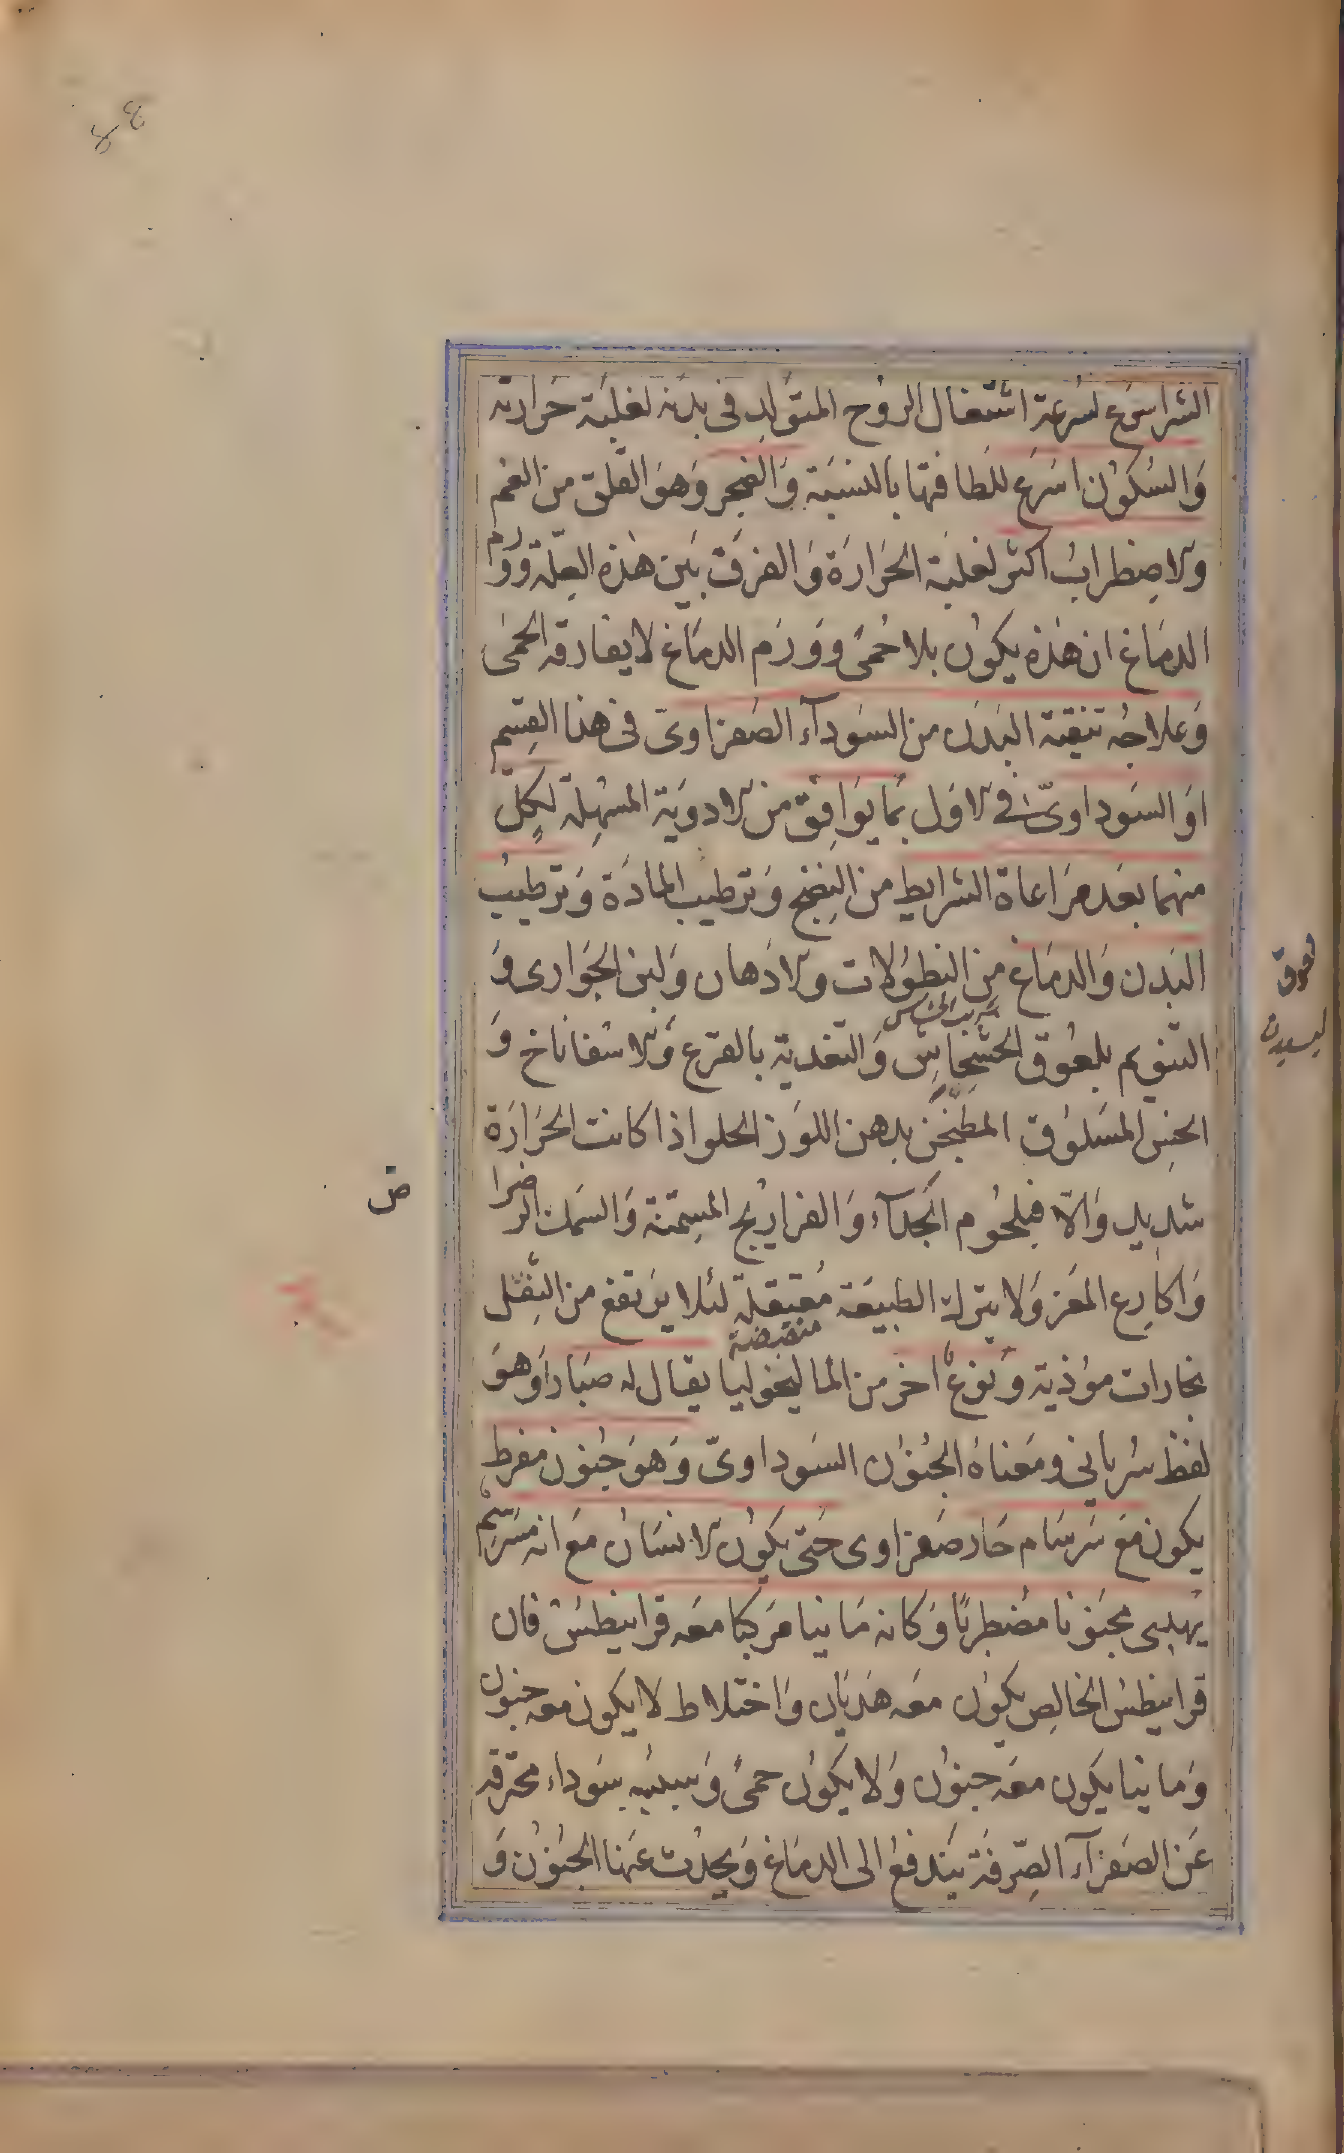 الشر اسرع لسرعة اشتغال الروح المتولد فى بدنه لغلبة حرارته
وَالسُكوُن اسَرع للَطافتها بالنسبَة وَالضجر وَهوَ القلق من الغم
والاضِطرابُ اكثر لغلبَة الحَرارَة وَالفرق بَين هٰذه العِلّة وورم
الدمَاغ ان هٰذه يكوُن بلا حُمىٰ وَوَرَم الدمَاغ لا يفارقه الحمىٰ
وَعلاجُه تنقيَة البَدَن من السَودآء الصَفراوىّ فى هذا القِسم
اوَ السَوداوىّ فى الاوَل بمَا يوَافِق من الادوَية المسُهِلة لكِلّ
منهما بعَد مرَاعاة الشرايط من النِضج وَترطيب المادَة وَترطيبُ
البَدن وَالدمَاغ من النطوُلات والادَهان وَلبن الجَوارى وَ
التنويم بلعُوق الخشخاش وَالتغدية بالقرَع وَالاسفاناخ وَ
الخسِ المسَلوُق المطَجّن بدهن اللوَز الحلو اذا كانت الحَرارَة
شديد وَالّا فبلحُوم الجَدآء وَالفراريُج المسِمّنة وَالسَمك الرضراضى
وَاكارِع المعَز وَلا يترك الطبيعَة مُعتقلة لئلا يَرتفع من الثِفل
منقبضة
بخارات موُذية وَنوَعُ اخر من الماليخوليا يقال له صبَارا وَهوَ
لفظ سُريانى ومَعناهُ الجُنوُن السَوداوىّ وَهوَ جُنون مفرط
يكون مَع سَرسَام حَار صَفراوى حَتى يكوُن الانسَان مَع انه مسَرسَم
يهذى مجَنوُنا مُضطربًا وَكانه مَانيا مرَكبا مَعه قرانيطسُ فان
قرانيطسُ الخالِص يكوُن مَعه هذيَان وَاختلاط لا يكون معه جنون
وَمانيا يكَون معَه جنوُن وَلا يكوُن حمىٰ وَسببُه سَوداء محترقة
عَن الصَفرآء الصِّرفَة يَندفعُ الى الدمَاغ وَيحدُث عَنها الجنُوُن وَ
لعوق
ليسيدن
ض